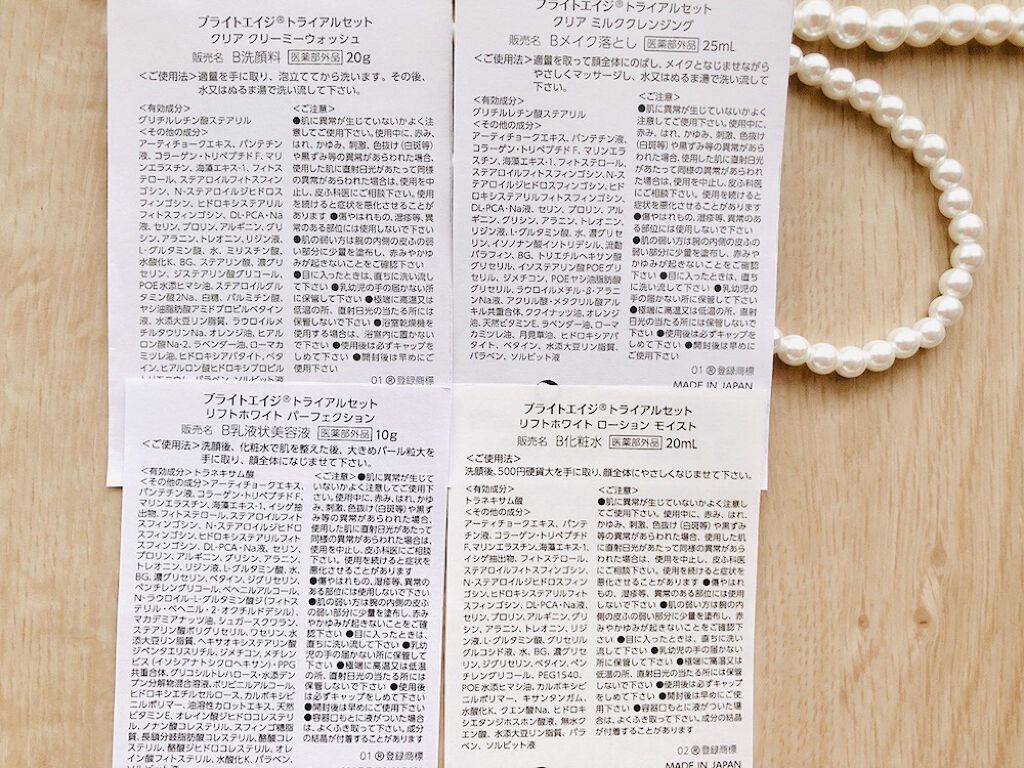 ブライトエイジ®トライアルセット
クリア クリーミーウォッシュ
販売名 B洗顔料 医薬部外品 20g
<ご使用法>適量を手に取り、泡立ててから洗います。その後、
水又はぬるま湯で洗い流して下さい。
<有効成分>
グリチルレチン酸ステアリル
<その他の成分>
アーティチョークエキス、パンテチン
液、コラーゲン・トリペプチド F、マリ
ンエラスチン、海藻エキス-1、フィトステ
ロール、ステアロイルフィトスフィン
ゴシン、N-ステアロイルジヒドロス
フィンゴシン、ヒドロキシステアリル
フィトスフィンゴシン、DL-PCA・Na
液、セリン、プロリン、アルギニン、グリ
シン、アラニン、トレオニン、リジン液、
L-グルタミン酸、水、ミリスチン酸、
水酸化K、BG、ステアリン酸、濃グリ
セリン、ジステアリン酸グリコール、
POE水添ヒマシ油、ステアロイルグル
タミン酸2Na、白糖、パルミチン酸、
ヤシ油脂肪酸アミドプロピルベタイン
液、水添大豆リン脂質、ラウロイルメ
チルタウリンNa、オレンジ油、ヒアル
ロン酸Na-2、ラベンダー油、ローマカ
ミツレ油、ヒドロキシアパタイト、ベタ
イン、ヒアルロン酸ヒドロキシプロピル
<ご注意>
●肌に異常が生じていないかよく注
意してご使用下さい。使用中に、赤み、
はれ、かゆみ、刺激、色抜け(白斑等)
や黒ずみ等の異常があらわれた場合、
使用した肌に直射日光があたって同様
の異常があらわれた場合は、使用を中
止し、皮ふ科医にご相談下さい。使用
を続けると症状を悪化させることがあ
ります ●傷やはれもの、湿疹等、異
常のある部位には使用しないで下さい
●肌の弱い方は腕の内側の皮ふの弱
い部分に少量を塗布し、赤みやかゆみ
が起きないことをご確認下さい
●目に入ったときは、直ちに洗い流し
て下さい ●乳幼児の手の届かない所
に保管して下さい ●極端に高温又は
低温の所、直射日光の当たる所には保
管しないで下さい ●浴室乾燥機を
使用する場合は、浴室内に置かない
で下さい ●使用後は必ずキャップを
しめて下さい ●開封後は早めにご
使用下さい
01 ®登録商標
ブライトエイジ®トライアルセット
クリア ミルククレンジング
販売名 Bメイク落とし 医薬部外品 25mL
<ご使用法>適量を取って顔全体にのばし、メイクとなじませながら
やさしくマッサージし、水又はぬるま湯で洗い流して
下さい。
<有効成分>
グリチルレチン酸ステアリル
<その他の成分>
アーティチョークエキス、パンテチン
液、コラーゲン・トリペプチド F、マリンエラ
スチン、海藻エキス-1、フィトステロール、
ステアロイルフィトスフィンゴシン、N-ス
テアロイルジヒドロスフィンゴシン、ヒド
ロキシステアリルフィトスフィンゴシン、
DL-PCA・Na液、セリン、プロリン、アル
ギニン、グリシン、アラニン、トレオニン、
リジン液、L-グルタミン酸、水、濃グリセ
リン、イソノナン酸イソトリデシル、流動
パラフィン、BG、トリエチルヘキサン酸
グリセリル、イソステアリン酸POEグリ
セリル、ジメチコン、POEヤシ油脂肪酸
グリセリル、ラウロイルメチル-β-アラニ
ンNa液、アクリル酸・メタクリル酸アル
キル共重合体、ククイナッツ油、オレン
ジ油、天然ビタミンE、ラベンダー油、ロー
マカミツレ油、月見草油、ヒドロキシア
パタイト、ベタイン、水添大豆リン脂質、
パラベン、ソルビット液
<ご注意>
●肌に異常が生じていないかよく注
意してご使用下さい。使用中に、赤
み、はれ、かゆみ、刺激、色抜け(白斑
等)や黒ずみ等の異常があらわれた
場合、使用した肌に直射日光があたっ
て同様の異常があらわれた場合は、
使用を中止し、皮ふ科医にご相談下
さい。使用を続けると症状を悪化さ
せることがあります ●傷やはれも
の、湿疹等、異常のある部位には使用
しないで下さい ●肌の弱い方は腕の
内側の皮ふの弱い部分に少量を塗布
し、赤みやかゆみが起きないことをご
確認下さい ●目に入ったときは、直
ちに洗い流して下さい ●乳幼児の手
の届かない所に保管して下さい
●極端に高温又は低温の所、直射日
光の当たる所には保管しないで下さ
い ●使用後は必ずキャップをしめて
下さい ●開封後は早めにご使用下
さい
01 ®登録商標
MADE IN JAPAN
ブライトエイジ®トライアルセット
リフトホワイト パーフェクション
販売名 B乳液状美容液 医薬部外品 10g
<ご使用法>洗顔後、化粧水で肌を整えた後、大きめパール粒大を
手に取り、顔全体になじませて下さい。
<有効成分>トラネキサム酸
<その他の成分>アーティチョークエキス、
パンテチン液、コラーゲン・トリペプチドF、
マリンエラスチン、海藻エキス-1、イシゲ抽
出物、フィトステロール、ステアロイルフィト
スフィンゴシン、N-ステアロイルジヒドロ
スフィンゴシン、ヒドロキシステアリルフィト
スフィンゴシン、DL-PCA・Na液、セリン、
プロリン、アルギニン、グリシン、アラニン、
トレオニン、リジン液、L-グルタミン酸、水、
BG、濃グリセリン、ベタイン、ジグリセリン、
ペンチレングリコール、ベヘニルアルコール、
N-ラウロイル-L-グルタミン酸ジ(フィトス
テリル・ベヘニル・2-オクチルドデシル)、
マカデミアナッツ油、シュガースクワラン、
ステアリン酸ポリグリセリル、ワセリン、水
添大豆リン脂質、ヘキサオキシステアリン酸
ジペンタエリスリチル、ジメチコン、メチレン
ビス(イソシアナトシクロヘキサン)・PPG
共重合体、グリコシルトレハロース・水添デン
プン分解物混合溶液、ポリビニルアルコール、
ヒドロキシエチルセルロース、カルボキシビ
ニルポリマー、油溶性カロットエキス、天然
ビタミンE、オレイン酸ジヒドロコレステリ
ル、ノナン酸コレステリル、スフィンゴ糖脂
質、長鎖分岐脂肪酸コレステリル、酪酸コレ
ステリル、酪酸ジヒドロコレステリル、オレ
イン酸コレステリル、水酸化K、パラベン、
ソルビット液
<ご注意>●肌に異常が生じて
いないかよく注意してご使用下
さい。使用中に、赤み、はれ、かゆ
み、刺激、色抜け(白斑等)や黒
ずみ等の異常があらわれた場合、
使用した肌に直射日光があたって
同様の異常があらわれた場合は、
使用を中止し、皮ふ科医にご相談
下さい。使用を続けると症状を
悪化させることがあります
●傷やはれもの、湿疹等、異常の
ある部位には使用しないで下さい
●肌の弱い方は腕の内側の皮ふ
の弱い部分に少量を塗布し、赤み
やかゆみが起きないことをご確
認下さい ●目に入ったときは、
直ちに洗い流して下さい ●乳幼
児の手の届かない所に保管して
下さい ●極端に高温又は低温
の所、直射日光の当たる所には保
管しないで下さい ●使用後
は必ずキャップをしめて下さい
●開封後は早めにご使用下さい
●容器口もとに液がついた場合
は、よくふき取って下さい。成分
の結晶が付着することがあります
01 ®登録商標
ブライトエイジ®トライアルセット
リフトホワイト ローション モイスト
販売名 B化粧水 医薬部外品 20mL
<ご使用法>
洗顔後、500円硬貨大を手に取り、顔全体にやさしくなじませて下さい。
<有効成分>
トラネキサム酸
<その他の成分>
アーティチョークエキス、パンテ
チン液、コラーゲン・トリペプチド
F、マリンエラスチン、海藻エキス-1、
イシゲ抽出物、フィトステロール、
ステアロイルフィトスフィンゴシン、
N-ステアロイルジヒドロスフィン
ゴシン、ヒドロキシステアリルフィト
スフィンゴシン、DL-PCA・Na液、
セリン、プロリン、アルギニン、グリ
シン、アラニン、トレオニン、リジ
ン液、L-グルタミン酸、グリセリル
グルコシド液、水、BG、濃グリセ
リン、ジグリセリン、ベタイン、ペン
チレングリコール、PEG1540、
POE水添ヒマシ油、カルボキシビ
ニルポリマー、キサンタンガム、
水酸化K、クエン酸Na、ヒドロキ
シエタンジホスホン酸液、無水ク
エン酸、水添大豆リン脂質、パラ
ベン、ソルビット液
<ご注意>
●肌に異常が生じていないかよく注意し
てご使用下さい。使用中に、赤み、はれ、
かゆみ、刺激、色抜け(白斑等)や黒ずみ
等の異常があらわれた場合、使用した肌
に直射日光があたって同様の異常があら
われた場合は、使用を中止し、皮ふ科医に
ご相談下さい。使用を続けると症状を
悪化させることがあります ●傷やはれ
もの、湿疹等、異常のある部位には使用
しないで下さい ●肌の弱い方は腕の内
側の皮ふの弱い部分に少量を塗布し、赤
みやかゆみが起きないことをご確認下さ
い ●目に入ったときは、直ちに洗い流
して下さい ●乳幼児の手の届かない所
に保管して下さい ●極端に高温又は
低温の所、直射日光の当たる所には保管
しないで下さい ●使用後は必ずキャップ
をしめて下さい ●開封後は早めにご使
用下さい ●容器口もとに液がついた場合
は、よくふき取って下さい。成分の結晶
が付着することがあります
02 ®登録商標
MADE IN JAPAN